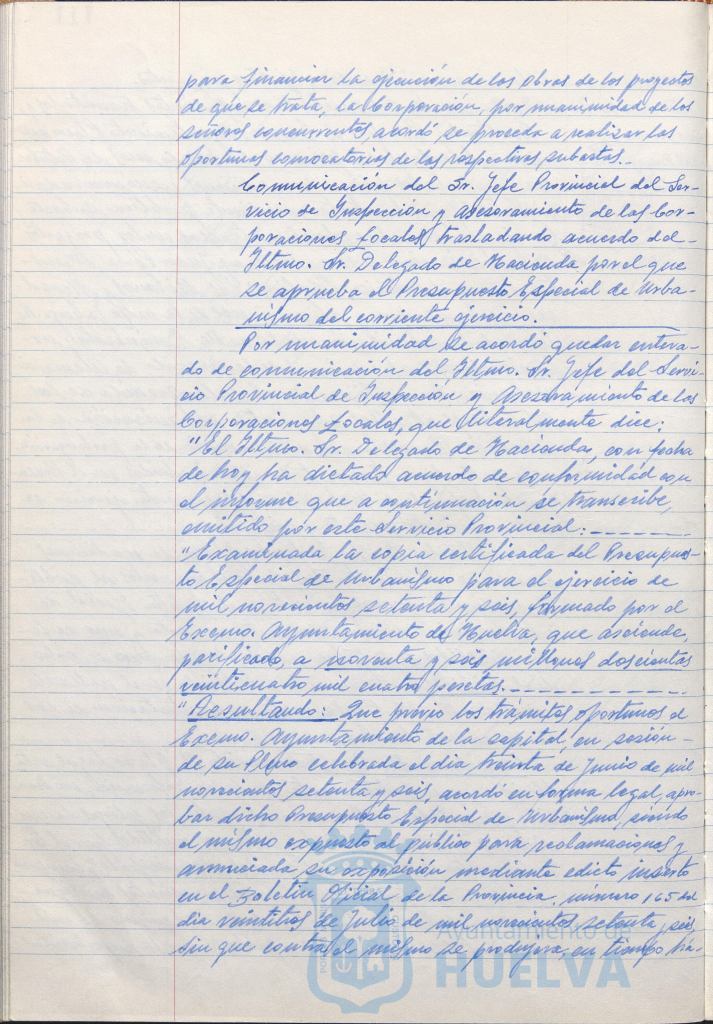 para financiar la ejecución de las obras de los proyectos
de que se trata, la Corporación, por unanimidad de los
señores concurrentes, acordó se proceda a realizar las
oportunas convocatorias de las respectivas subastas.-
Comunicación del Sr. Jefe Provincial del Ser-
vicio de Inspección y Asesoramiento de las Cor-
poraciones Locales, trasladando acuerdo del
Iltmo. Sr. Delegado de Hacienda por el que
se aprueba el Presupuesto Especial de Urba-
nismo del corriente ejercicio.
Por unanimidad se acordó quedar entera-
do de comunicación del Iltmo. Sr. Jefe del Servi-
cio Provincial de Inspección y Asesoramiento de las
Corporaciones Locales, que literalmente dice:
"El Iltmo. Sr. Delegado de Hacienda, con fecha
de hoy ha dictado acuerdo de conformidad con
el informe que a continuación se transcribe,
emitido por este Servicio Provincial:-------
"Examinada la copia certificada del Presupues-
to Especial de Urbanismo para el ejercicio de
mil novecientos setenta y seis, formado por el
Excmo. Ayuntamiento de Huelva, que asciende,
parificado, a noventa y seis millones doscientas
veinticuatro mil cuatro pesetas.------------
"Resultando: Que previo los trámites oportunos el
Excmo. Ayuntamiento de la capital, en sesión-
de su Pleno celebrada el día treinta de Junio de mil
novecientos setenta y seis, acordó en forma legal, apro-
bar dicho Presupuesto Especial de Urbanismo, siendo
el mismo expuesto al público para reclamaciones y
anunciada su exposición mediante edicto inserto
en el Boletín Oficial de la Provincia, número 165 del
día veintitrés de Julio de mil novecientos setenta y seis,
sin que contra el mismo se produjera, en tiempo há-
Ayuntamiento de
HUELVA